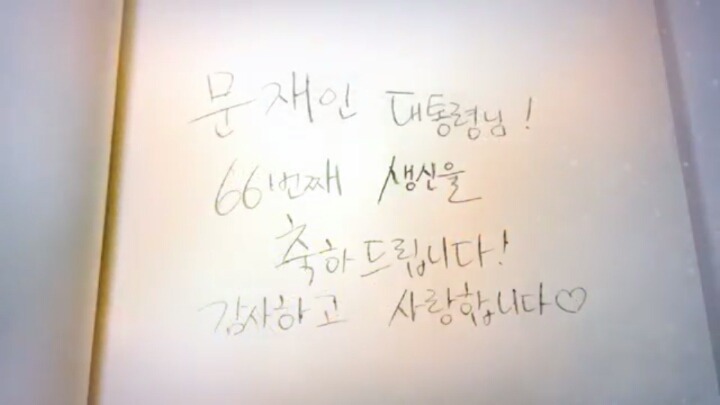 문재인 대통령님!
66번째 생신을
축하드립니다!
감사하고 사랑합니다♡